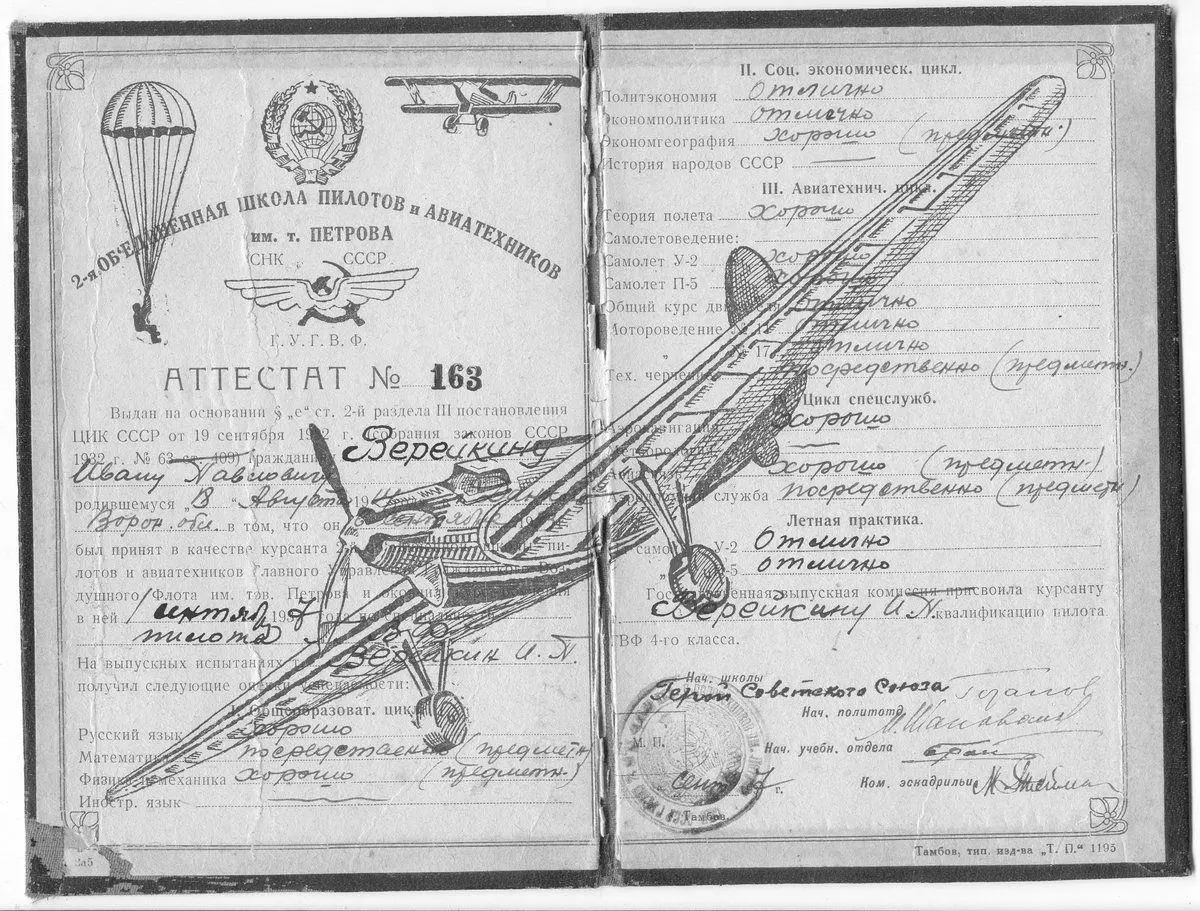 2-я ОБ'ЕДИНЕННАЯ ШКОЛА ПИЛОТОВ и АВИАТЕХНИКОВ
им. т. ПЕТРОВА
СНК СССР
Г. У. Г. В. Ф.
АТТЕСТАТ № 163
Выдан на основании § „е“ ст. 2-й раздела III постановления
ЦИК СССР от 19 сентября г. (собрания законов СССР
1932 г. № 63 ст. 409) гражданину Верейкину
Ивану Павловичу
родившемуся „13 “ Август 19
Ворон. обл. в том, что он сентября
был принят в качестве курсанта
лотов и авиатехников Главного
душного Флота им. тов. Петрова и
в ней 1 сентяб 7
пилота
На выпускных испытаниях т. Верейкин И. П.
получил следующие оценки успеваемости:
I. Общеобразоват. цикл
Русский язык хорошо
Математика посредственно (предметн
Физика и механика хорошо (предметн.)
Иностр. язык
II. Соц. экономическ. цикл.
Политэкономия отлично
Экономполитика отлично
Экономгеография хорошо (предметн.)
История народов СССР
III. Авиатехнич. цикл.
Теория полета хорошо
Самолетоведение:
Самолет У-2 хорошо
Самолет П-5 хорошо
Общий курс отлично
Мотороведение № 11 отлично
„ № 17 отлично
Тех. черчение посредственно (предметн.)
Цикл спецслужб.
Аэронавигация хорошо
хорошо (предметн.)
служба посредственно (предметн)
Летная практика.
У-2 Отлично
-5 отлично
Государственная выпускная комиссия присвоила курсанту
Верейкину И. П. квалификацию пилота
ГВФ 4-го класса.
Нач. школы
Герой Советского Союза
Нач. политотд.
М. П.
Нач. учебн. отдела
сент 7 г.
Ком. эскадрильи
Тамбов.
Тамбов, тип. изд-ва „Т. П.“ 1195